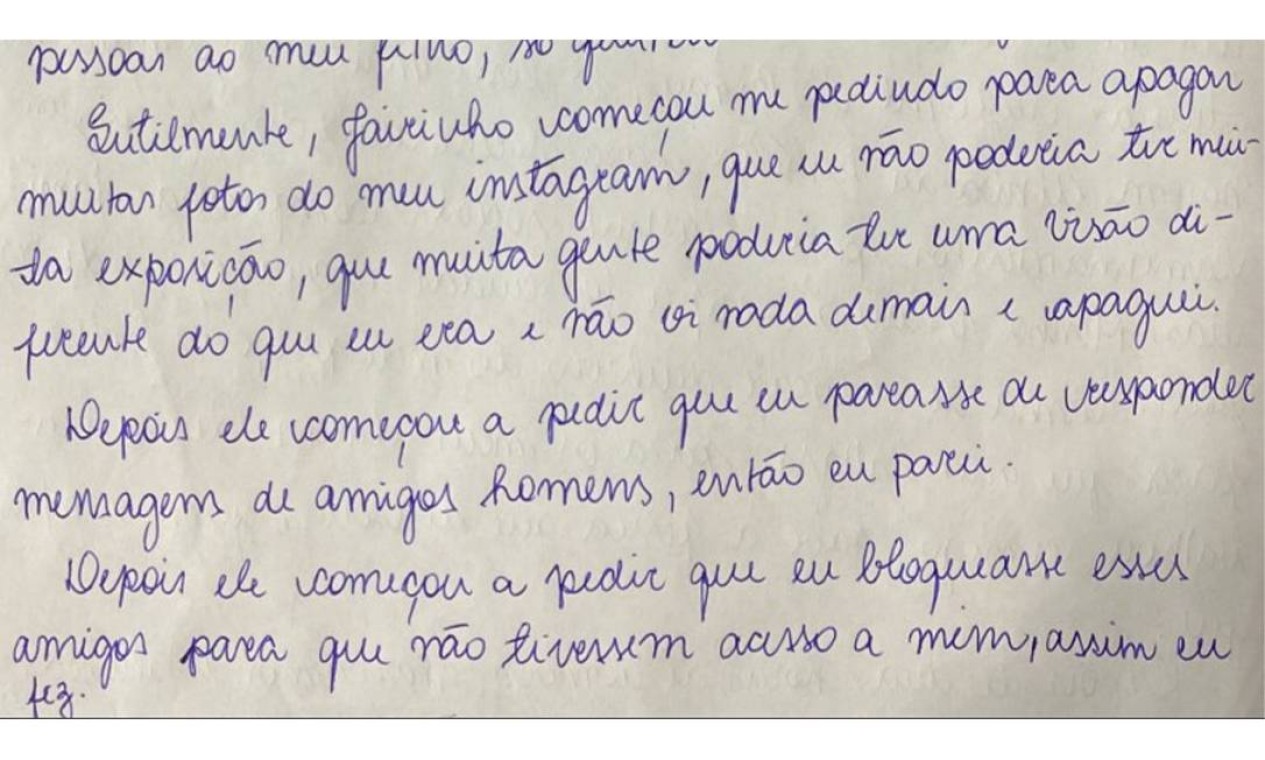 pessoas ao meu filho, só
Sutilmente, Jairinho começou me pedindo para apagar
muitas fotos do meu instagram, que eu não poderia ter mui-
ta exposição, que muita gente poderia ter uma visão di-
ferente do que eu era e não vi nada demais e apaguei.
Depois ele começou a pedir que eu parasse de responder
mensagens de amigos homens, então eu parei.
Depois ele começou a pedir que eu bloqueasse esses
amigos para que não tivessem acesso a mim, assim eu
fez.